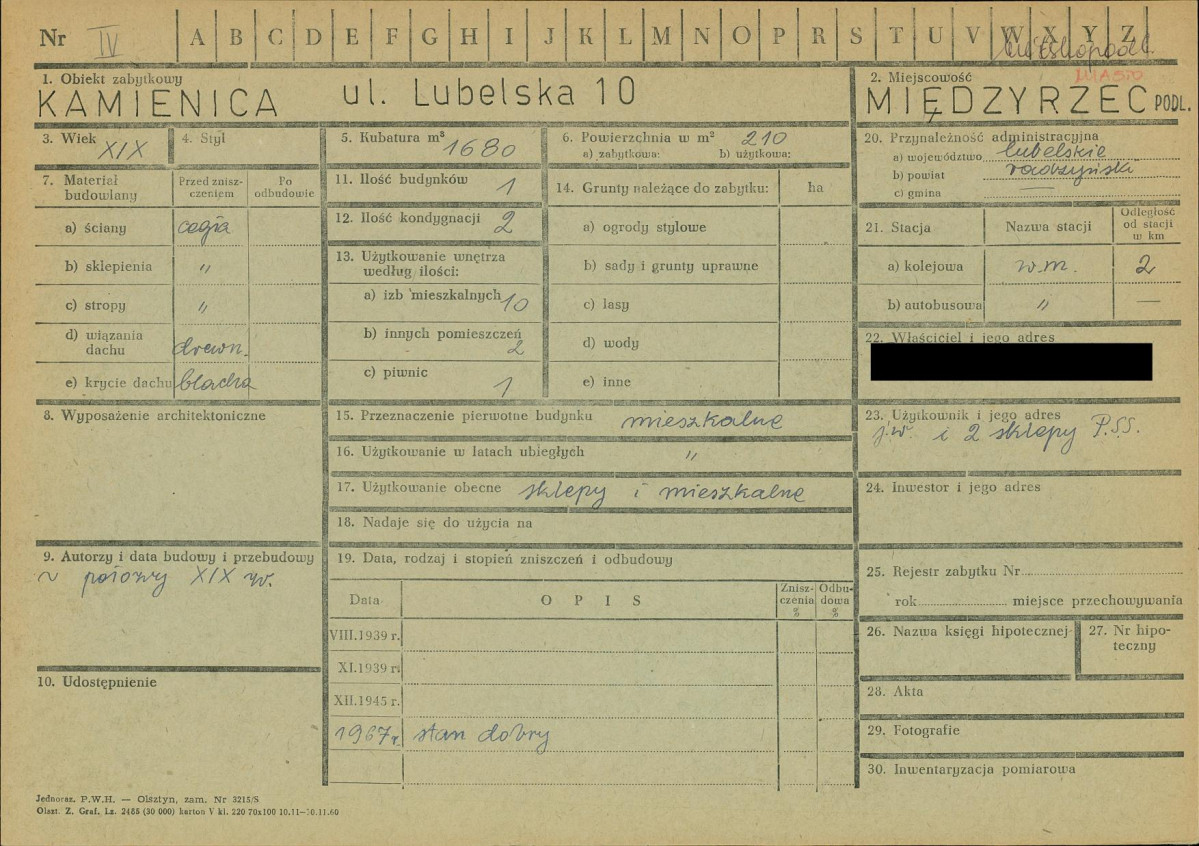 Nr IV A B C D E F G H I J K L M N O P R S T U V W X Y Z
MIASTO
1. Obiekt zabytkowy
KAMIENICA ul. Lubelska 10
2. Miejscowość
MIĘDZYRZEC PODL.
3. Wiek XIX
4. Styl
5. Kubatura m³ 1680
6. Powierzchnia w m² 210
a) zabytkowa: b) użytkowa:
7. Materiał budowlany
Przed znisz-
czeniem
Po
odbudowie
a) ściany cegła
b) sklepienia "
c) stropy "
d) wiązania
dachu drewn.
e) krycie dachu blacha
8. Wyposażenie architektoniczne
9. Autorzy i data budowy i przebudowy
połowy XIX w.
10. Udostępnienie
11. Ilość budynków 1
12. Ilość kondygnacji 2
13. Użytkowanie wnętrza
według ilości:
a) izb mieszkalnych 10
b) innych pomieszczeń
2
c) piwnic 1
14. Grunty należące do zabytku: ha
a) ogrody stylowe
b) sady i grunty uprawne
c) lasy
d) wody
e) inne
15. Przeznaczenie pierwotne budynku mieszkalne
16. Użytkowanie w latach ubiegłych "
17. Użytkowanie obecne sklepy i mieszkalne
18. Nadaje się do użycia na
19. Data, rodzaj i stopień zniszczeń i odbudowy
Data OPIS
Znisz-
czenia
%
Odbu-
dowa
%
VIII.1939 r.
XI.1939 r.
XII.1945 r.
1967 r. stan dobry
20. Przynależność administracyjna
a) województwo lubelskie
b) powiat radzyński
c) gmina —
21. Stacja Nazwa stacji
Odległość
od stacji
w km
a) kolejowa w.m. 2
b) autobusowa " —
22. Właściciel i jego adres
23. Użytkownik i jego adres
j.w. i 2 sklepy P.S.S.
24. Inwestor i jego adres
25. Rejestr zabytku Nr
rok miejsce przechowywania
26. Nazwa księgi hipotecznej
27. Nr hipo-
teczny
28. Akta
29. Fotografie
30. Inwentaryzacja pomiarowa
Jednoraz. P.W.H. — Olsztyn, zam. Nr 3215/S
Olszt. Z. Graf. Lz. 2485 (30 000) karton V kl. 220 70x100 10.11—10.11.60